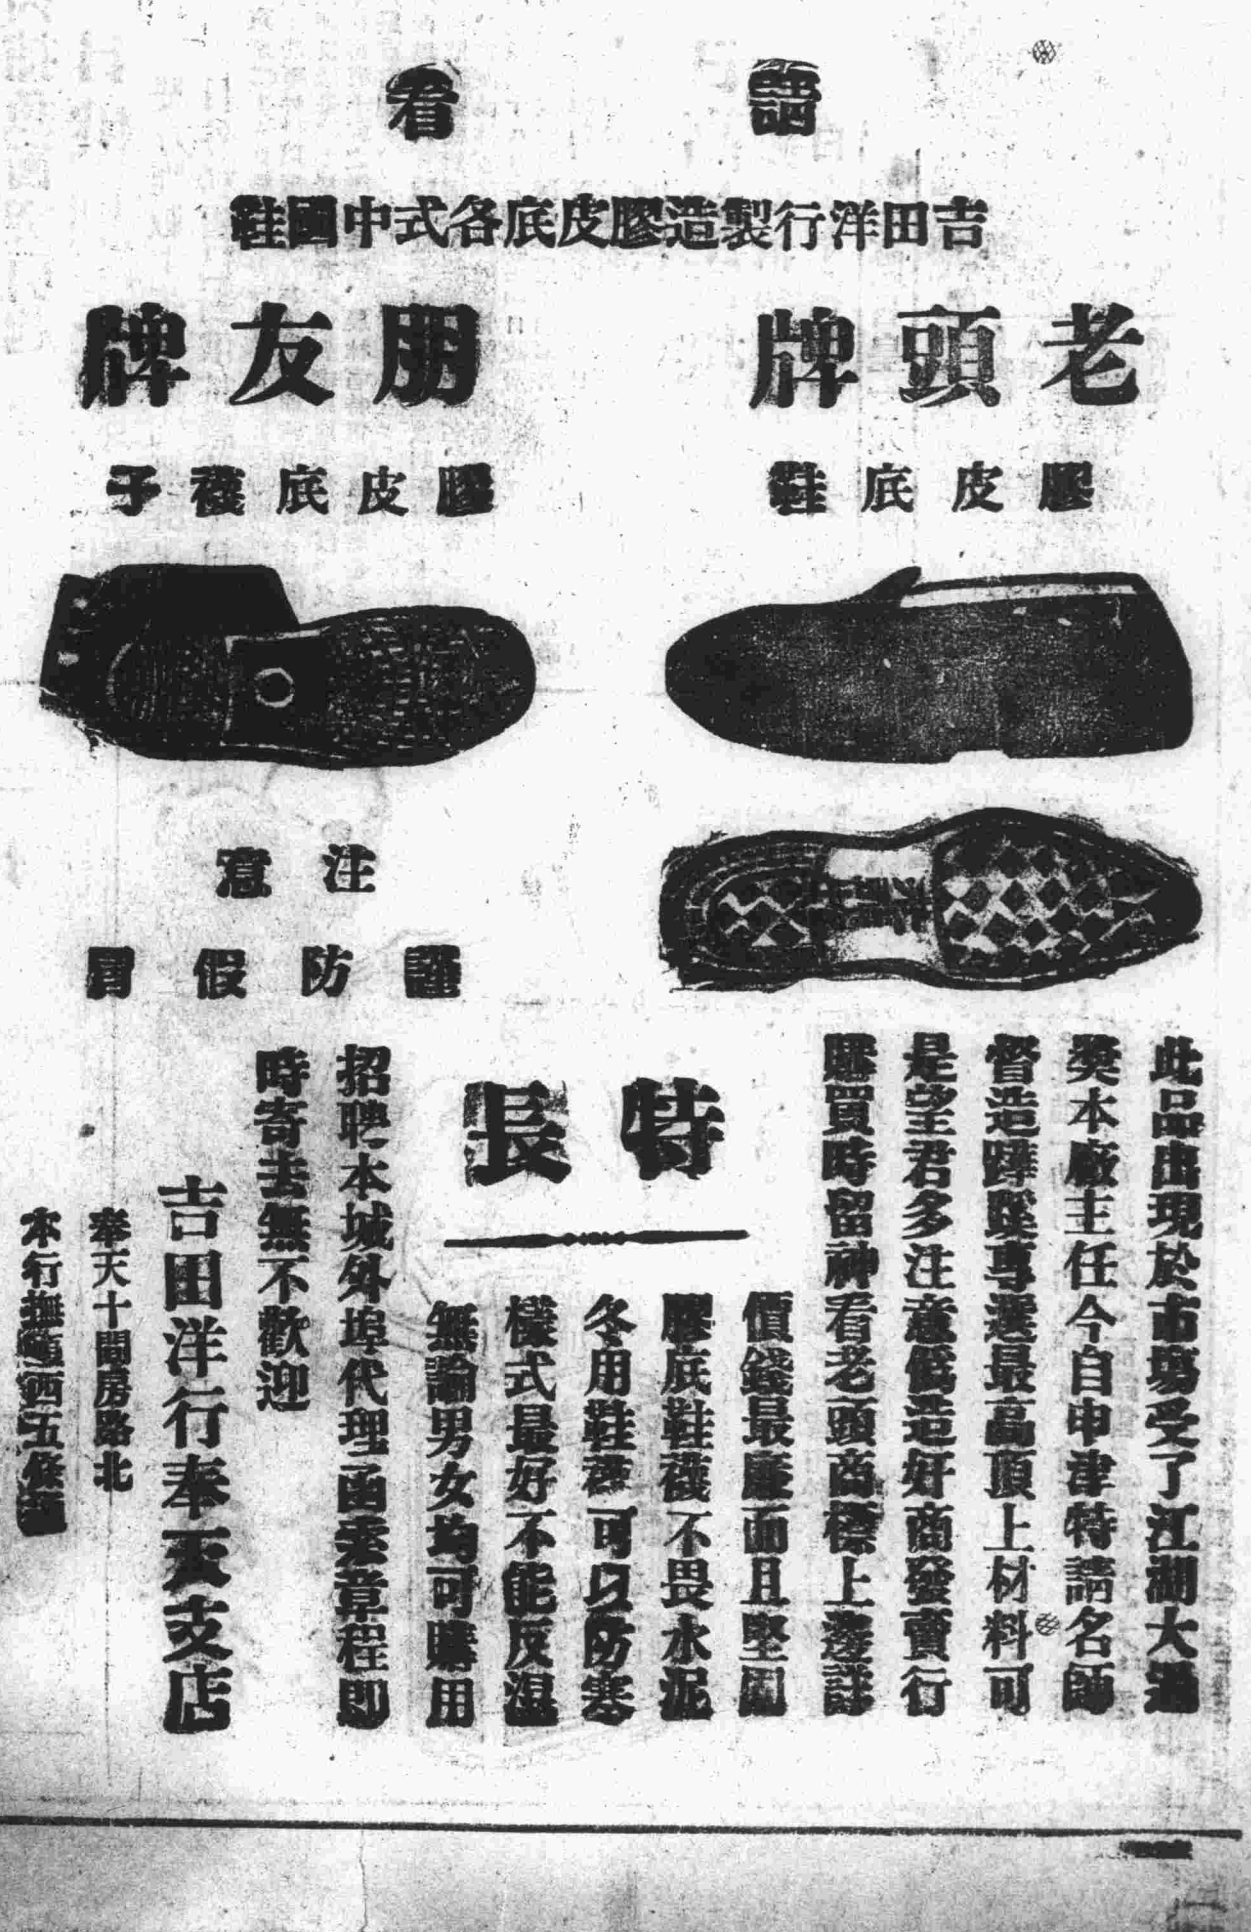 請看
吉田洋行製造膠皮底各式中國鞋
老頭牌
膠皮底鞋
朋友牌
膠皮底襪子
注意
謹防假冒
此品出現於市場受了江湖大過
奬本廠主任今自申津特請名師
督造蹕蹊專選最高頂上材料可
是望君多注意僞造奸商發賣行
購買時留神看老頭商標上邊註
特長
價錢最廉而且堅固
膠底鞋襪不畏水泥
冬用鞋襪可以防寒
樣式最好不能反濕
無論男女均可購用
招聘本城外埠代理函索章程即
時寄去無不歡迎
吉田洋行奉天支店
奉天十間房路北
本行撫順西五條